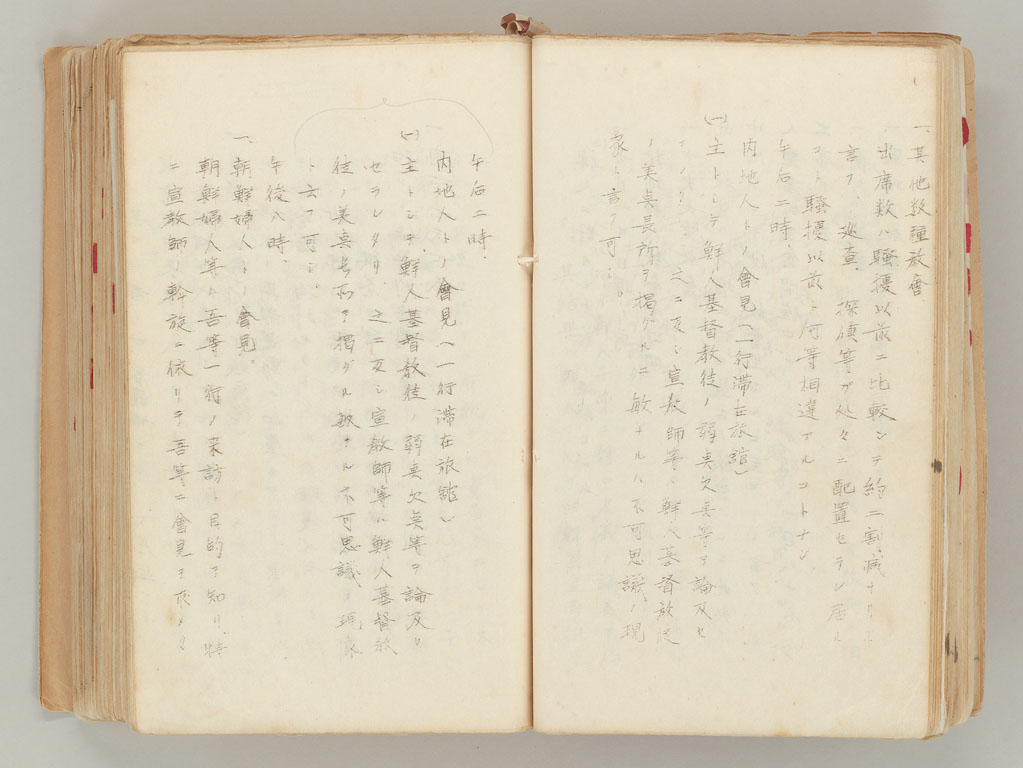 一、其他数種教會
出席数ハ騒擾以前ニ比較シテ約二割減ナリト
言フ、巡査、探偵等ガ処々ニ配置セラレ居ル
コト騒擾以前ト何等相違アルコトナシ
午后二時、
内地人トノ會見(一行滞在旅舘)
(一)主トシテ鮮人基督教徒ノ弱点欠点等ヲ論及セ
之ニ反シ宣教師等ハ鮮人基督教徒
ノ美点長所ヲ掲グルニ敏ナルハ不可思議ノ現
象ト言フ可シ。
午后二時、
内地人トノ會見(一行滞在旅舘)
(一)主トシテ、鮮人基督教徒ノ弱点欠点等ヲ論及
セラレタリ 之ニ反シ宣教師等ハ鮮人基督教
徒ノ美点長所ヲ掲グル敏ナル不可思議ノ現象
ト云フ可シ。
午後八時、
一、朝鮮婦人トノ會見。
朝鮮婦人等ハ吾等一行ノ来訪ト目的ヲ知リ、特
ニ宣教師ノ斡旋ニ依リテ吾等ニ會見ヲ求メタ